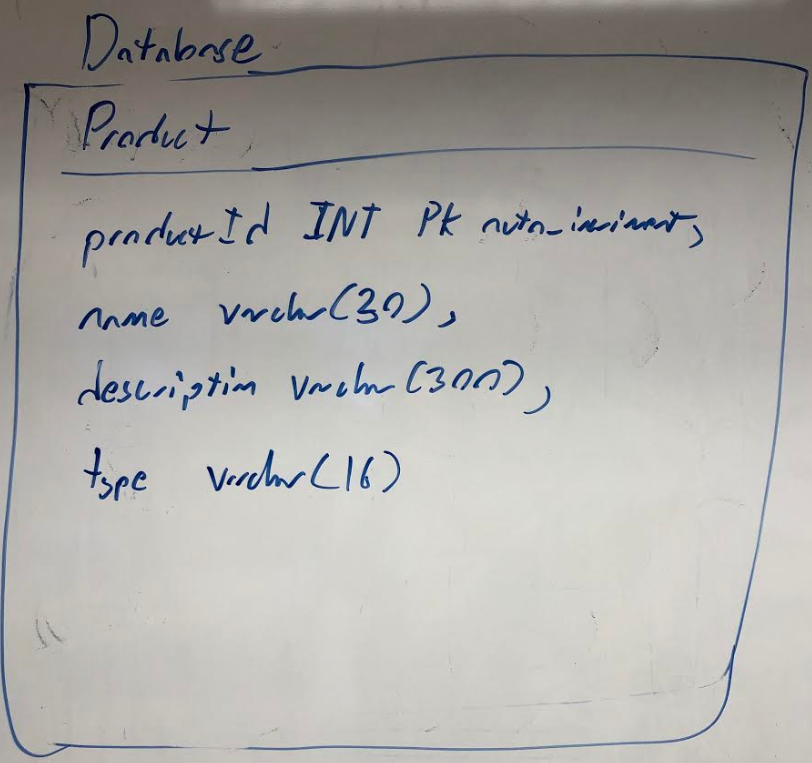 Database
Product
productId INT PK auto_incriment,
name varchar(30),
description varchar(300),
type varchar(16)